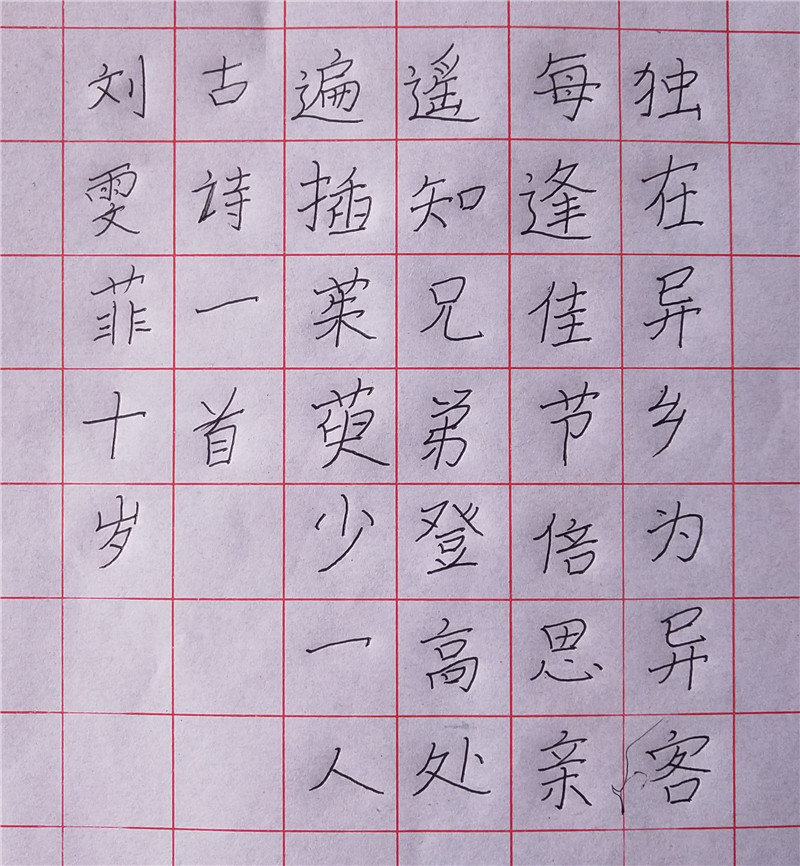 独在异乡为异客
每逢佳节倍思亲
遥知兄弟登高处
遍插茱萸少一人
古诗一首
刘雯菲十岁